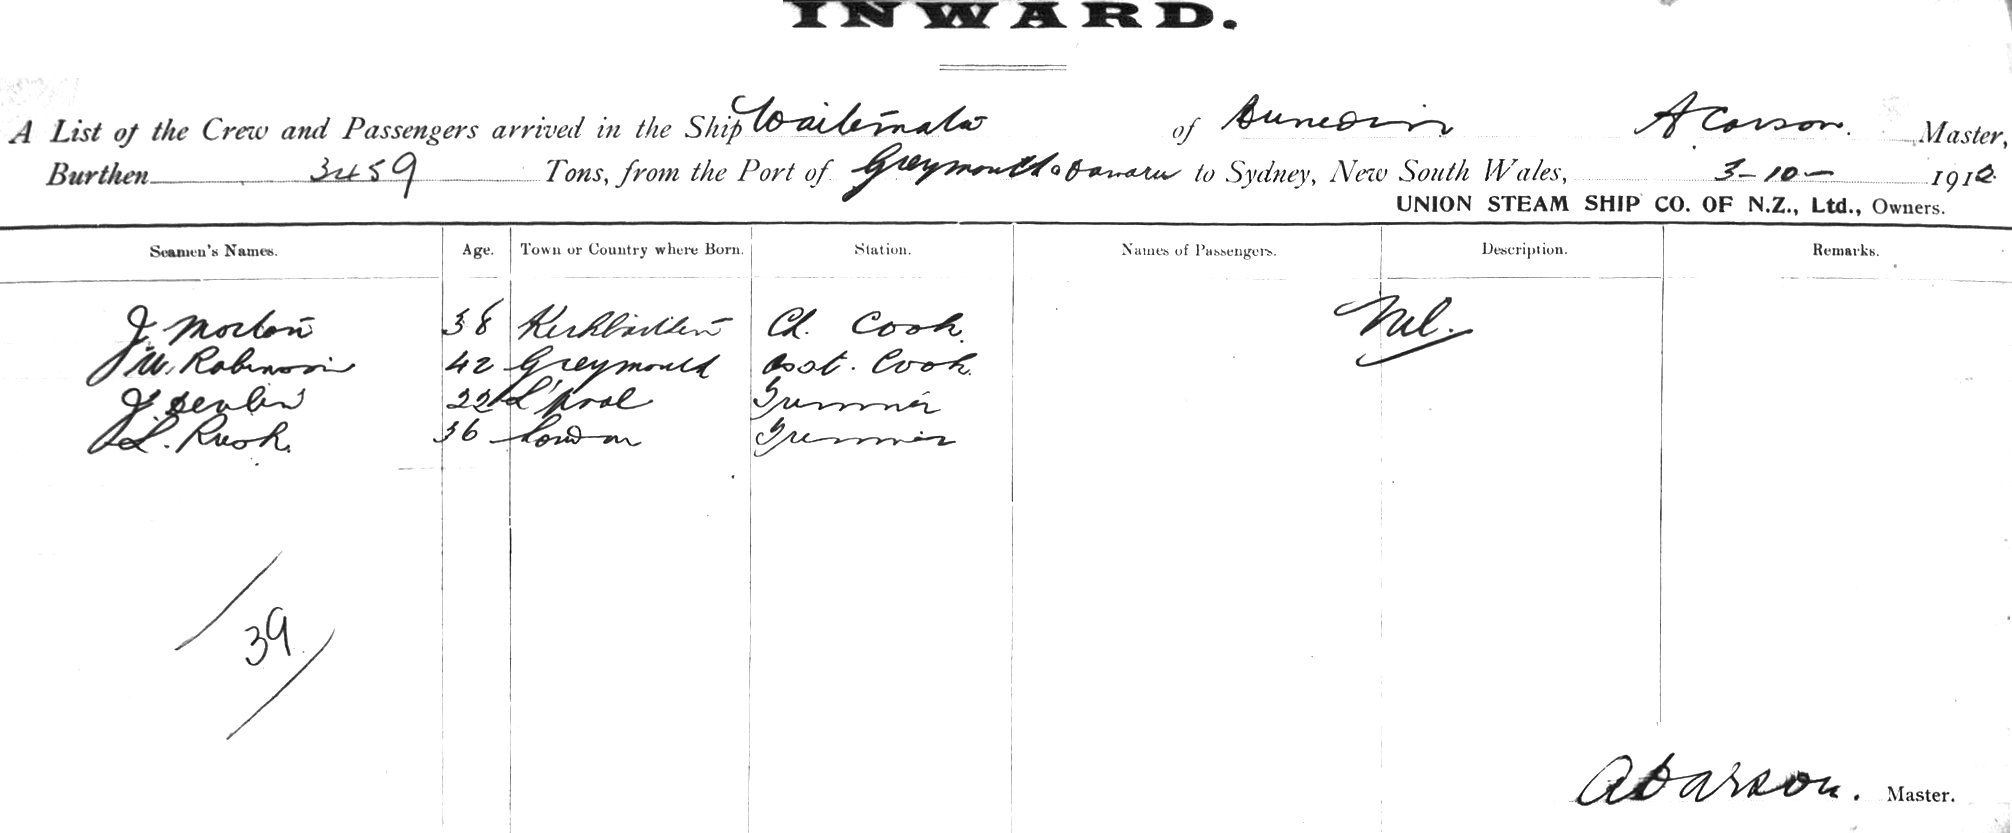 INWARD.
A List of the Crew and Passengers arrived in the Ship Waitemata of Dunedin A Carson. Master,
Burthen 3459 Tons, from the Port of Greymouth & Oamaru to Sydney, New South Wales, 3-10- 1912.
UNION STEAM SHIP CO. OF N.Z., Ltd., Owners.
Seamen's Names. Age. Town or Country where Born. Station. Names of Passengers. Description. Remarks.
J. Morton 38 Ch. Cook. Nil.
W. Robinson 42 Greymouth Asst. Cook.
J. Devlin 22 L'pool Trimmer
L. Rush. 36 London Trimmer
39
A Carson. Master.